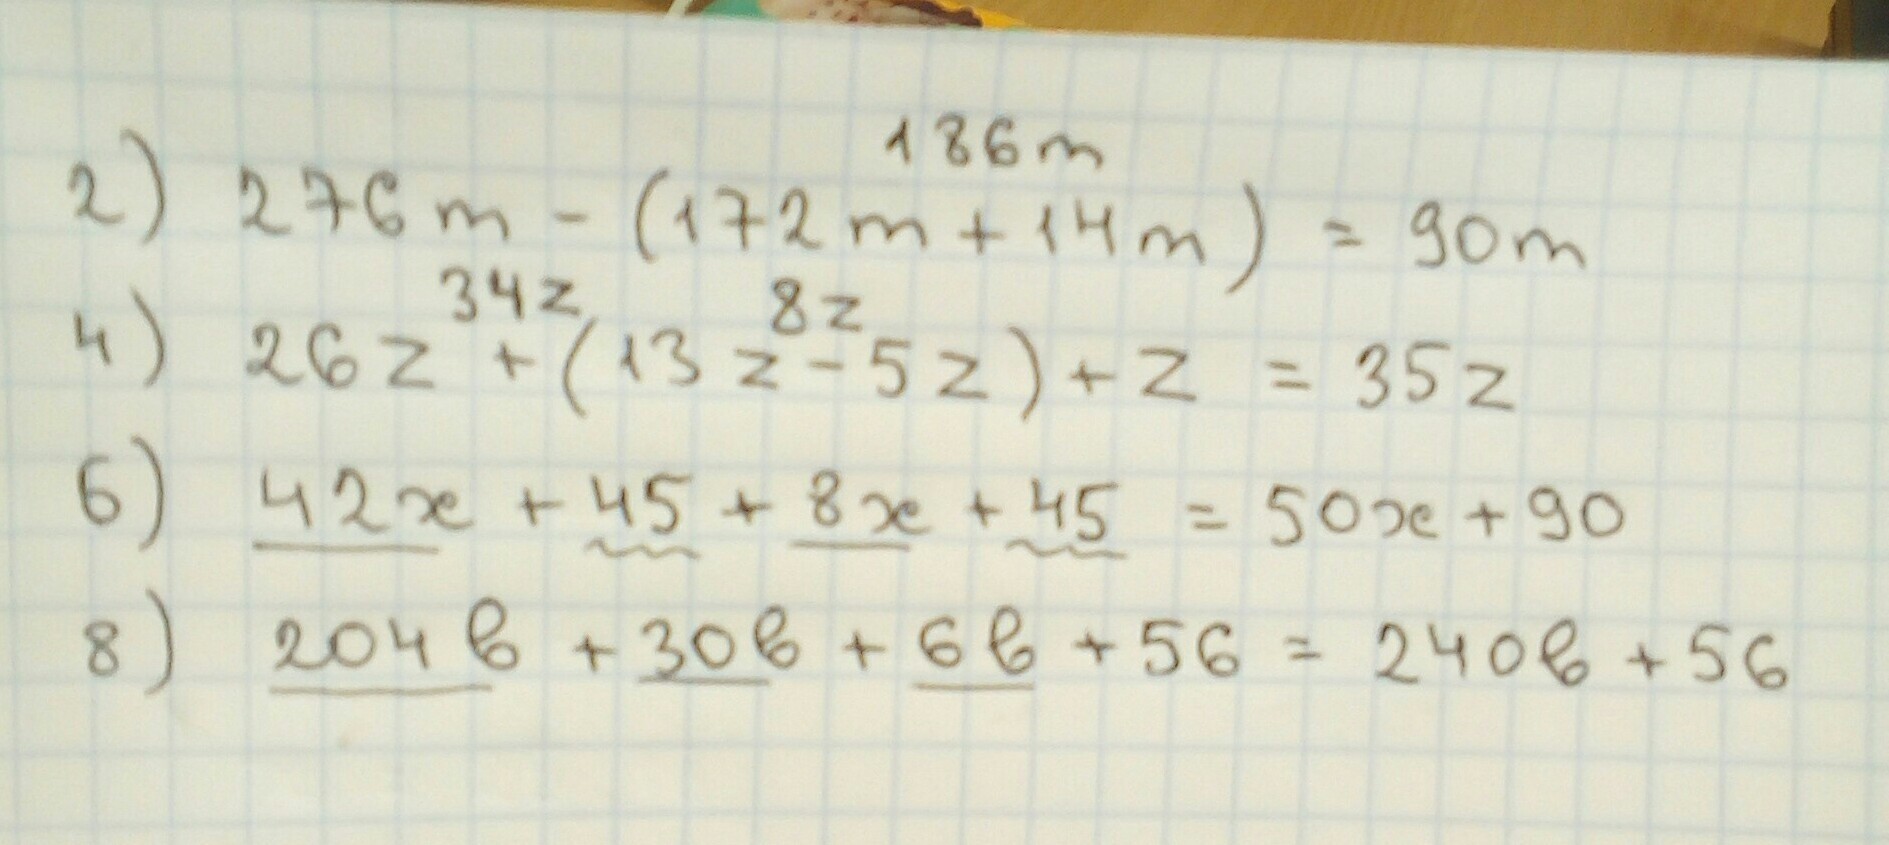 186m
2) 276m - (172m + 14m) = 90m
34z 8z
4) 26z + (13z - 5z) + z = 35z
6) 42x + 45 + 8x + 45 = 50x + 90
8) 204b + 30b + 6b + 56 = 240b + 56